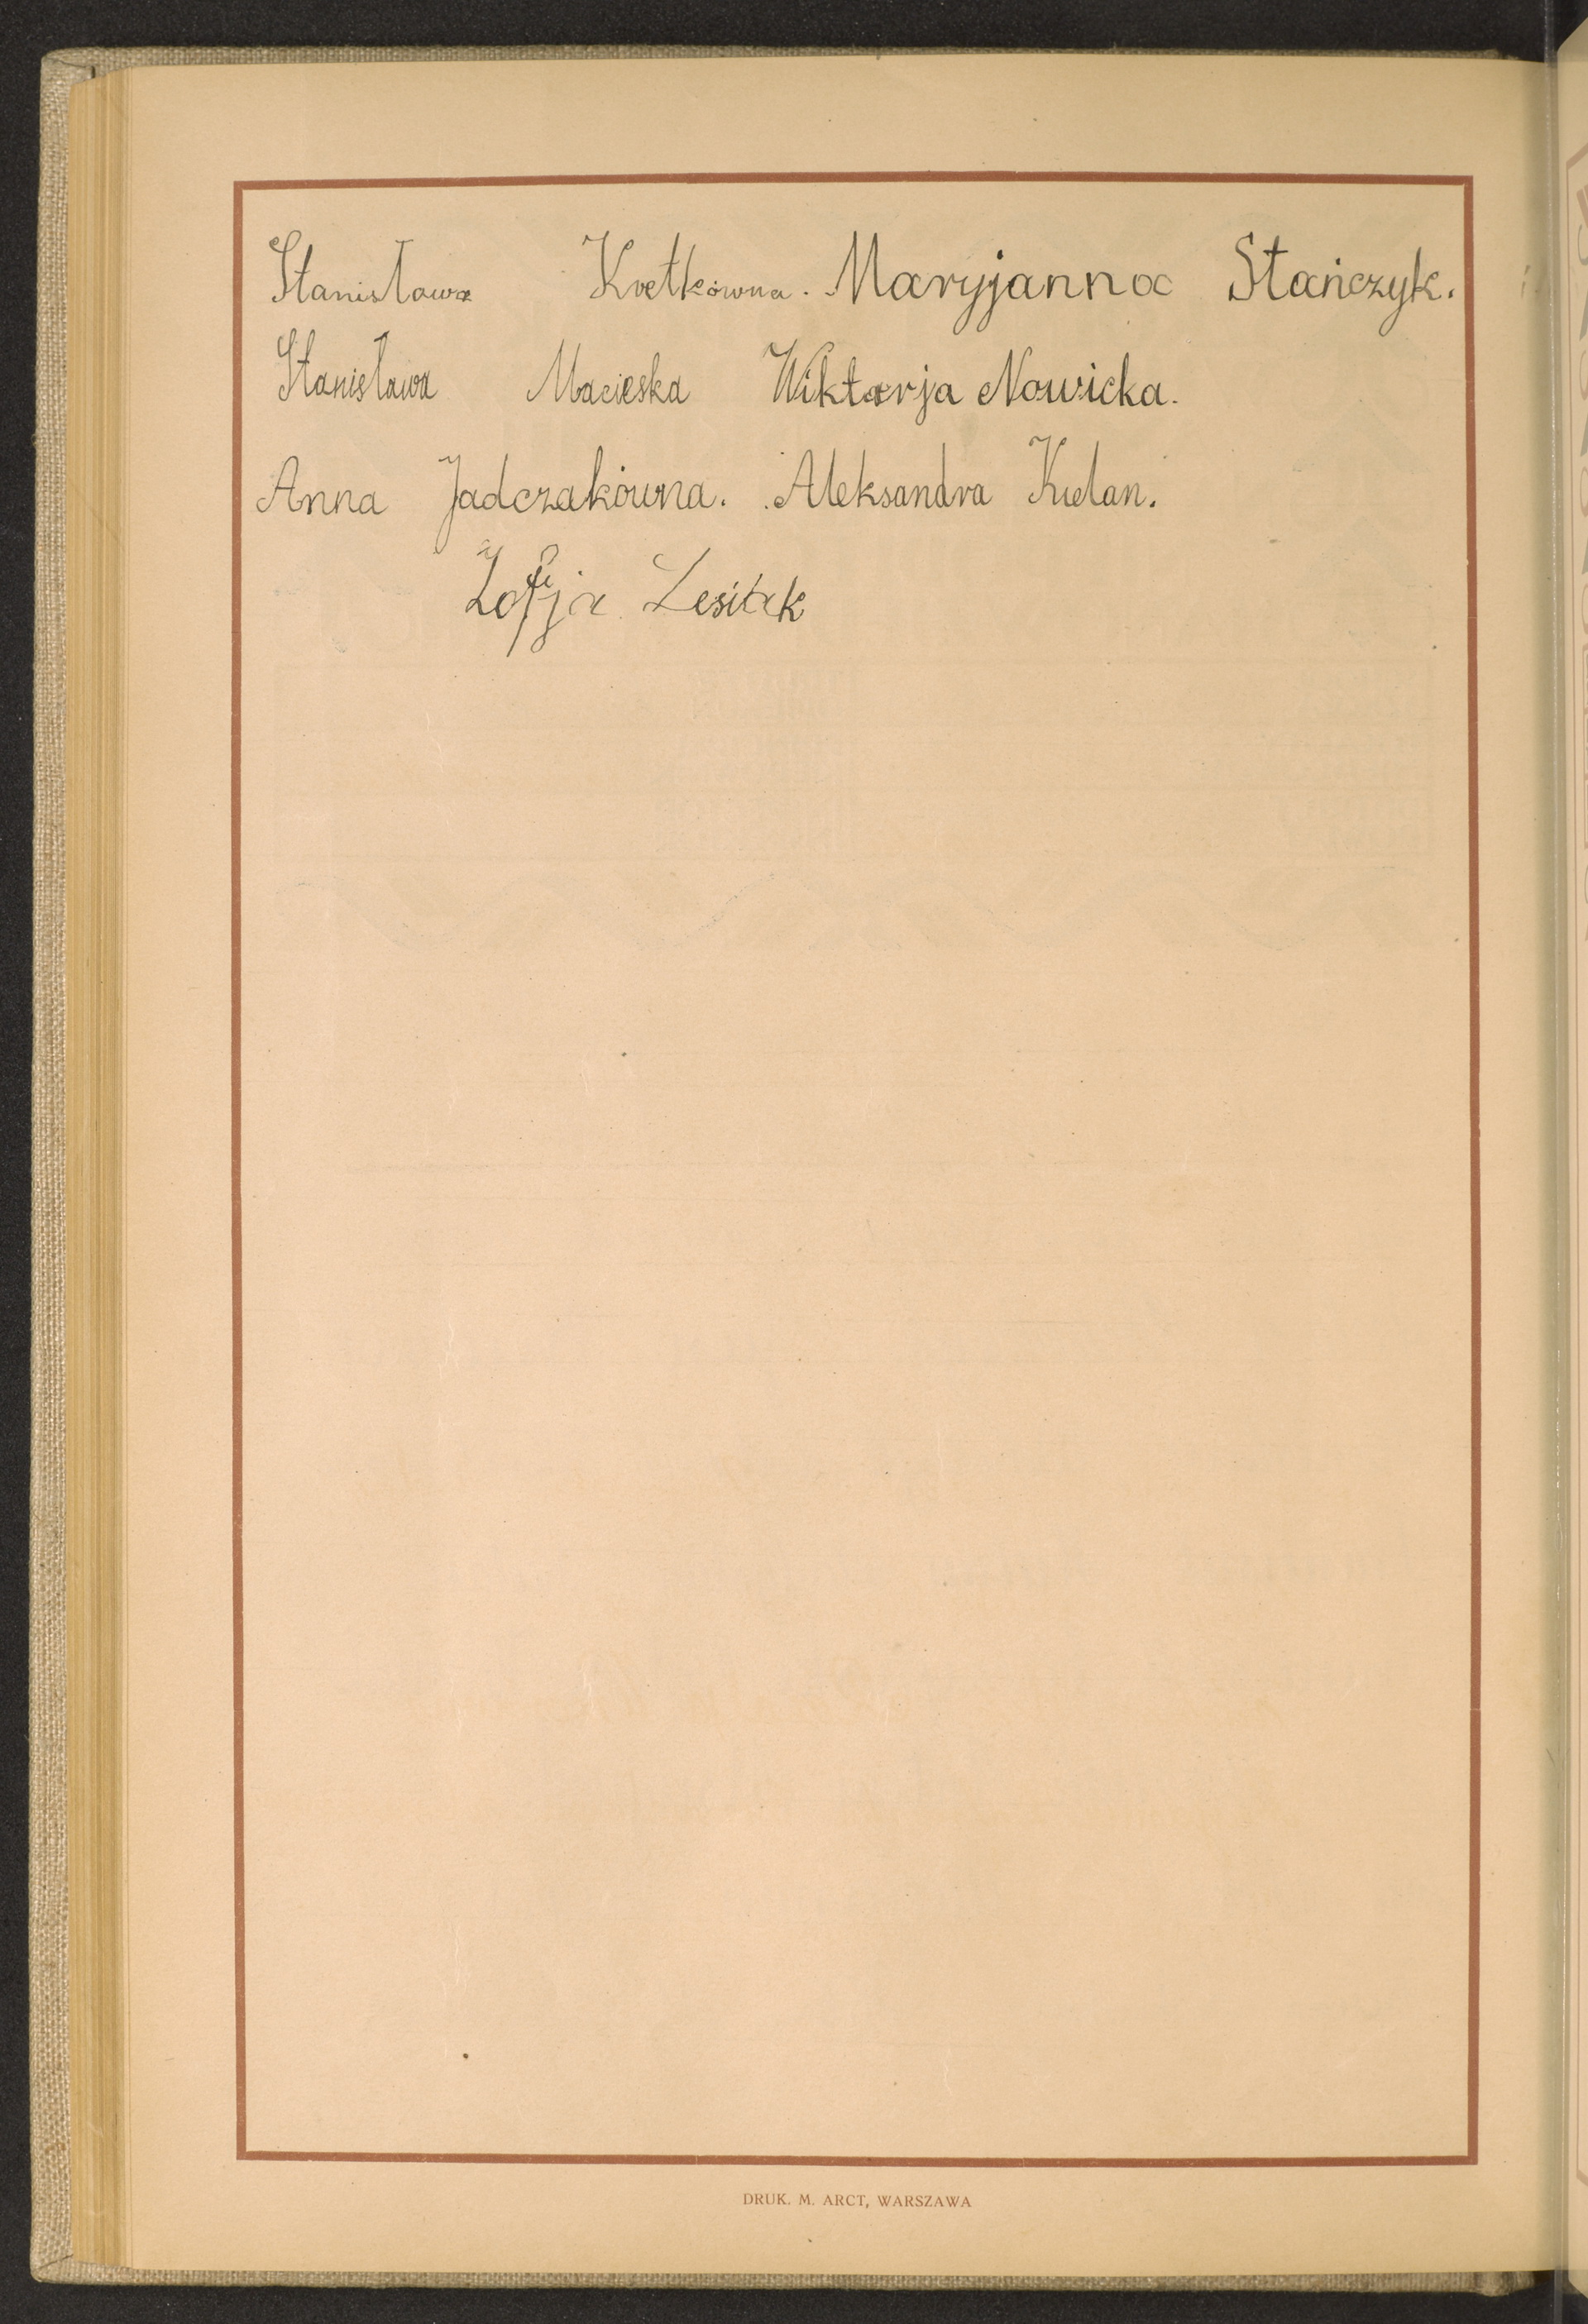 Stanisława Kretkówna. Maryjanna Stańczyk.
Stanisława Macieska Wiktorja Nowicka.
Anna Jadczakówna. Aleksandra Kielan.
Zofja Lesiak
DRUK. M. ARCT, WARSZAWA